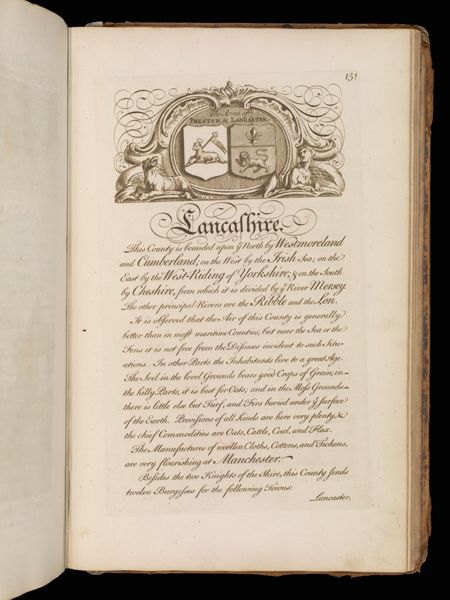 151
The Arms of
PRESTON & LANCASTER
Lancashire.
This County is bounded upon ẏ North by Westmoreland
and Cumberland; on the West by the Irish Sea; on the
East by the West-Riding of Yorkshire; & on the South
by Cheshire, from which it is divided by ẏ River Mersey.
The other principal Rivers are the Ribble and the Lon.
It is observed that the Air of this County is generally
better than in most maritime Counties; but near the Sea or the
Fens it is not free from the Diseases incident to such Situ-
ations. In other Parts the Inhabitants live to a great Age.
The Soil in the level Grounds bears good Crops of Grain; in
the hilly Parts, it is best for Oats; and in the Moss Grounds
there is little else but Turf, and Firs buried under ẏ surface
of the Earth. Provisions of all Kinds are here very plenty, &
the chief Commodities are Oats, Cattle, Coal, and Flax.
The Manufactures of woollen Cloths, Cottons, and Tickens,
are very flourishing at Manchester.
Besides the two Knights of the Shire, this County sends
twelve Burgesses for the following Towns:
Lancaster,